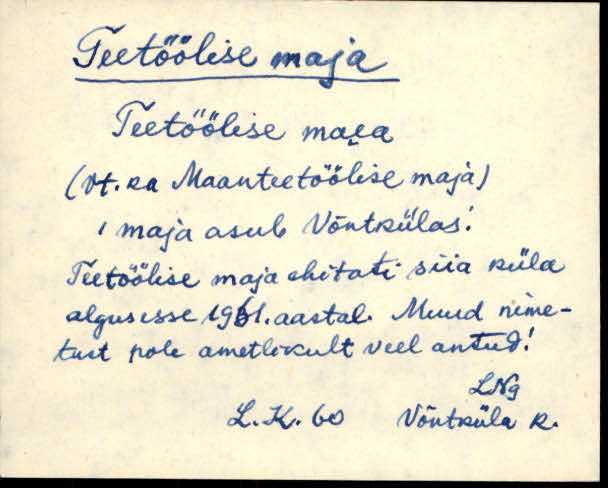 Teetöölise maja
Teetöölise maea
(vt. ka Maanteetöölise maja)
, maja asub Võntkülas!
Teetöölise maja ehitati siia küla
algusesse 1961. aastal. Muud nime-
tust pole ametlikult veel antud!
LNg
L. K. 60 Võntküla k.